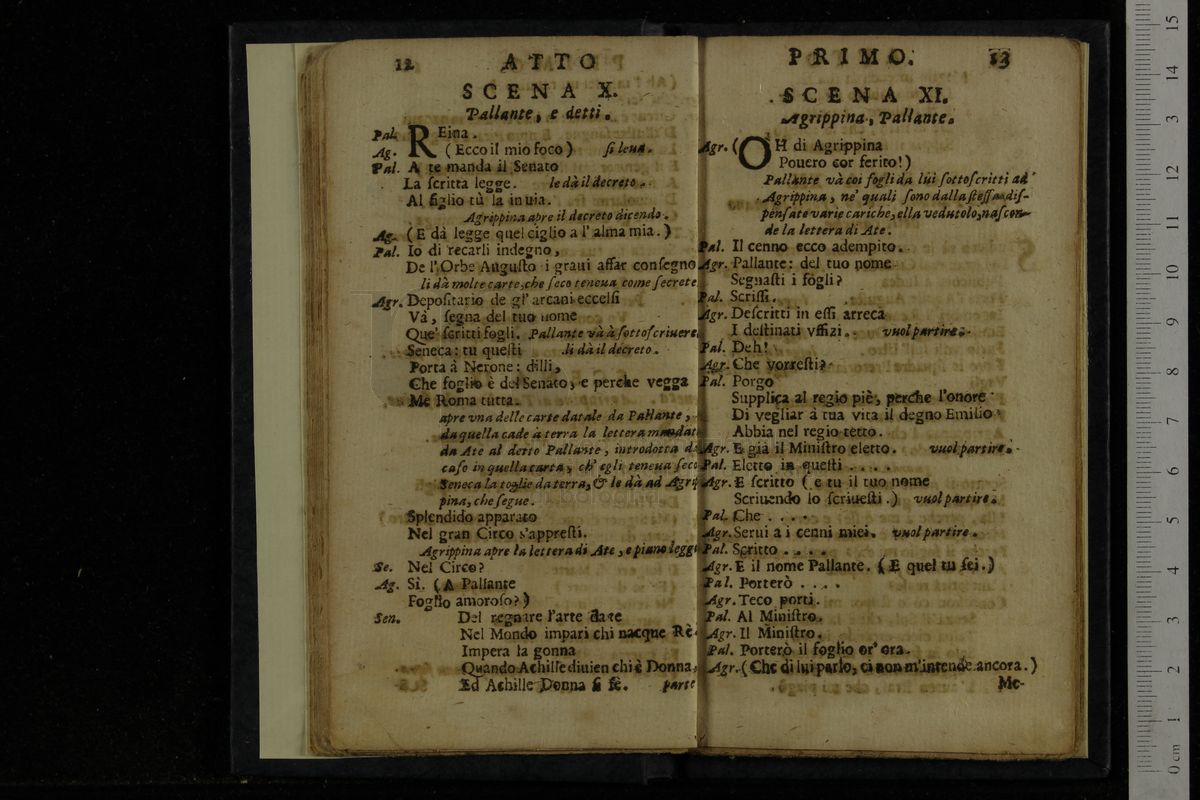 12 ATTO
SCENA X.
Pallante, e detti.
Pal. REina.
Ag. (Ecco il mio foco) si leua.
Pal. A te manda il Senato
La scritta legge. le dà il decreto.
Al figlio tù la inuia.
Agrippina apre il decreto dicendo.
Ag. (E dà legge quel ciglio a l'alma mia.)
Pal. Io di recarli indegno,
De l'Orbe Augusto i graui affar consegno
li dà molte carte, che seco teneua come secrete
Agr. Depositario de gl'arcani eccelsi
Và, segna del tuo nome
Que' scritti fogli. Pallante và à sottoscriuere
Seneca: tu questi li dà il decreto.
Porta à Nerone: dilli,
Che foglio è del Senato, e perche vegga
Me Roma tutta.
apre vna delle carte datale da Pallante,
da quella cade à terra la lettera mandat
da Ate al detto Pallante, introdotta d
caso in quella carta, ch'egli teneua seco
Seneca la toglie da terra, & le dà ad Agrip
pina, che segue.
Splendido apparato
Nel gran Circo s'appresti.
Agrippina apre la lettera di Ate, e piano legg
Se. Nel Circo?
Ag. Si. (A Pallante
Foglio amoroso?)
Sen. Del regnare l'arte
Nel Mondo impari chi nacque Rè
Impera la gonna
Quando Achille diuien chi è Donna,
Ed Achille Donna si fè. parte
PRIMO. 13
SCENA XI.
Agrippina, Pallante.
Agr. (OH di Agrippina
Pouero cor ferito!)
Pallante và coi fogli da lui sottoscritti ad
Agrippina, ne' quali sono dalla stessa dis-
pensate varie cariche, ella vedutolo, nascon-
de la lettera di Ate.
Pal. Il cenno ecco adempito.
Agr. Pallante: del tuo nome
Segnasti i fogli?
Pal. Scrissi.
Agr. Descritti in essi arreca
I destinati vffizi. vuol partire.
Pal. Deh!
Agr. Che vorresti?
Pal. Porgo
Supplica al regio piè, perche l'onore
Di vegliar à tua vita il degno Emilio
Abbia nel regio tetto.
Agr. E già il Ministro eletto. vuol partire.
Pal. Eletto in questi . . . .
Agr. E scritto (e tu il tuo nome
Scriuendo lo scriuesti.) vuol partire.
Pal. Che . . . .
Agr. Serui a i cenni miei. vuol partire.
Pal. Scritto . . . .
Agr. E il nome Pallante. (E quel tu sei.)
Pal. Porterò . . . .
Agr. Teco porti.
Pal. Al Ministro.
Agr. Il Ministro.
Pal. Porterò il foglio or' ora.
Agr. (Che di lui parlo, ci non m'intende ancora.)
Me-